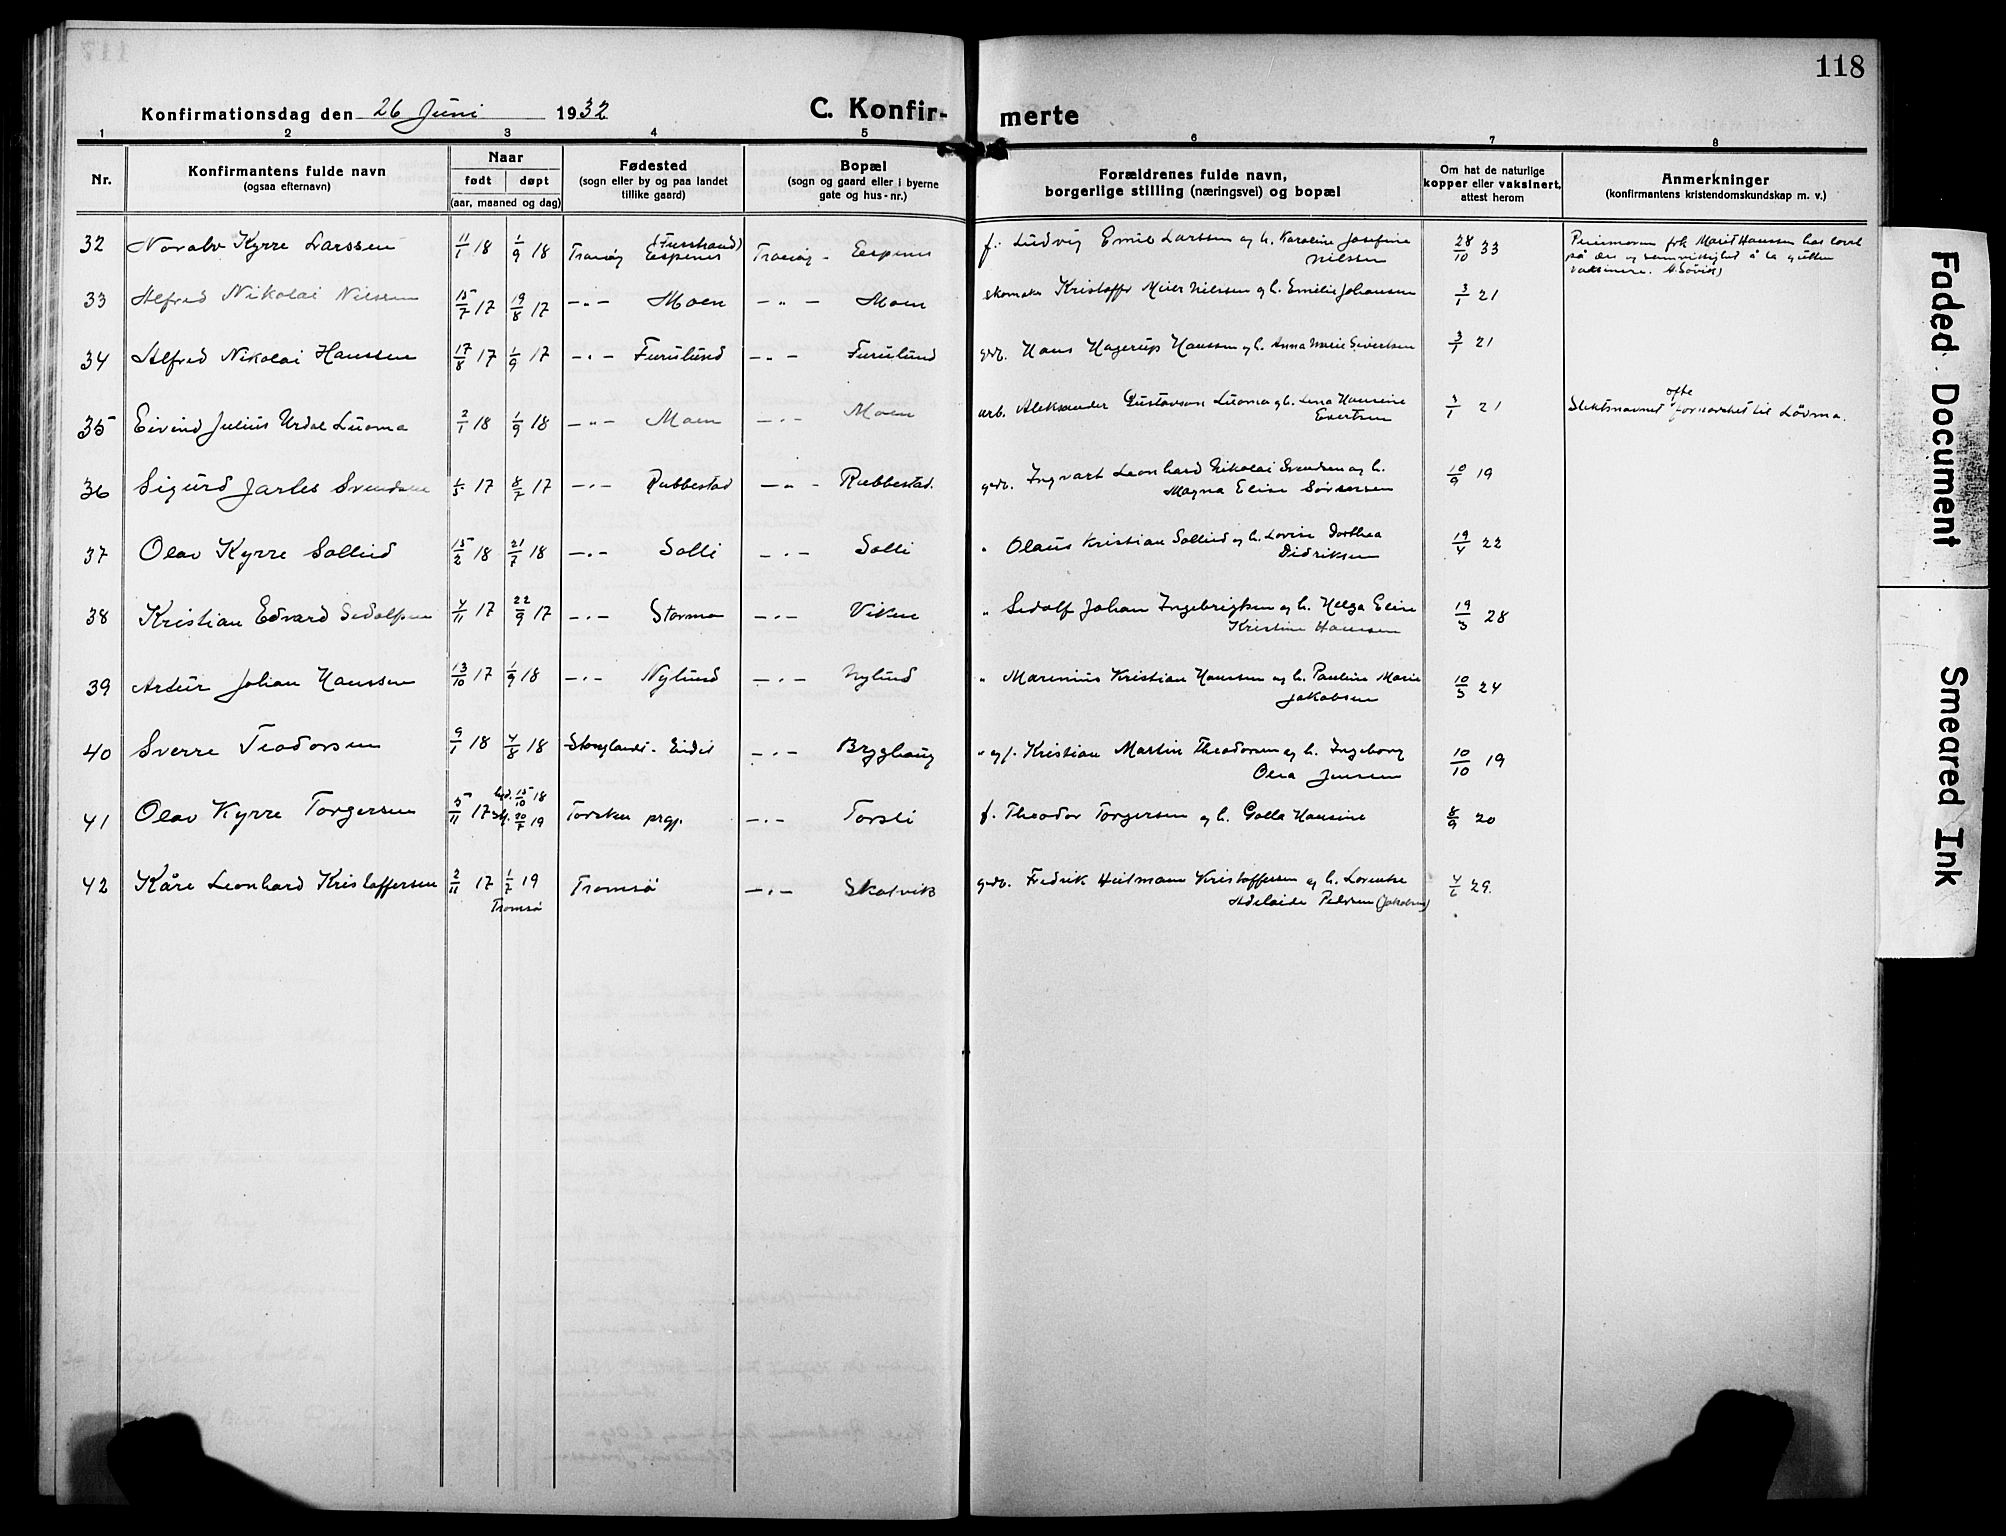 118
Konfirmationsdag den 26 Juni 1932
C. Konfir-
merte
1 2 3 4 5 6 7 8
Nr.
Konfirmantens fulde navn
(ogsaa efternavn)
Naar
født døpt
(aar, maaned og dag)
Fødested
(sogn eller by og paa landet
tillike gaard)
Bopæl
(sogn og gaard eller i byerne
gate og hus-nr.)
Forældrenes fulde navn,
borgerlige stilling (næringsvei) og bopæl
Om hat de naturlige
kopper eller vaksinert,
attest herom
Anmerkninger
(konfirmantens kristendomskundskap m. v.)
32 Noralv Kyrre Larssen 11/1 18 1/9 18 Tranøy Espenes Tranøy - Espenes f. Ludvig Emil Larssen og h. Karoline Josefine
Nilssen 28/10 33
33 Alfred Nikolai Nilssen 15/7 17 19/8 17 - " - Moen - " - Moen skomaker Kristoffer Meier Nilssen og h. Emilie Johansen 3/1 21
34 Alfred Nikolai Hanssen 17/8 17 1/9 17 - " - Furulund - " - Furulund gdr. Hans Hagerup Hanssen og h. Anna Marie Sivertsen 3/1 21
35 Eivind Julius Urdal Luoma 2/1 18 1/9 18 - " - Moen - " - Moen arb. Aleksander Gustavson Luoma og h. Lena Hansine
Evertsen 3/1 21 Slektsnavnet ofte fornorsket til Løvma.
36 Sigurd Jarles Svendsen 1/5 17 8/7 17 - " - Rubbestad - " - Rubbestad. gdr. Ingvart Leonhard Nikolai Svendsen og h.
Magna Elise Sørensen 10/9 19
37 Olav Kyrre Sollied 15/2 18 21/7 18 - " - Solli - " - Solli " Olaus Kristian Sollied og h. Lovise Dorthea
Didriksen 19/4 22
38 Kristian Edvard Sedolfsen 4/11 17 22/9 17 - " - Stormo - " - Viken " Sedolf Johan Ingebrigtsen og h. Helga Elise
Kristine Hanssen 19/3 28
39 Artur Johan Hanssen 13/10 17 1/9 18 - " - Nylund - " - Nylund " Marenius Kristian Hanssen og h. Pauline Marie
Jakobsen 10/3 24
40 Sverre Teodorsen 9/1 18 4/8 18 Eidet - " - Brygghaug " og f. Kristian Martin Theodorsen og h. Ingeborg
Olea Jensen 10/10 19
41 Olav Kyrre Torgersen 5/11 17 15/10 18
20/7 19 Torsken prgj. - " - Torsli f. Theodor Torgersen og h. Golla Hansine 8/9 20
42 Kåre Leonhard Kristoffersen 2/11 17 1/7 19
Tromsø Tromsø - " - Skatvik gdr. Fredrik Heitmann Kristoffersen og h. Lorentse
Adelaide Pedersen (Jakobsen) 4/6 29.
Faded Document
Smeared Ink